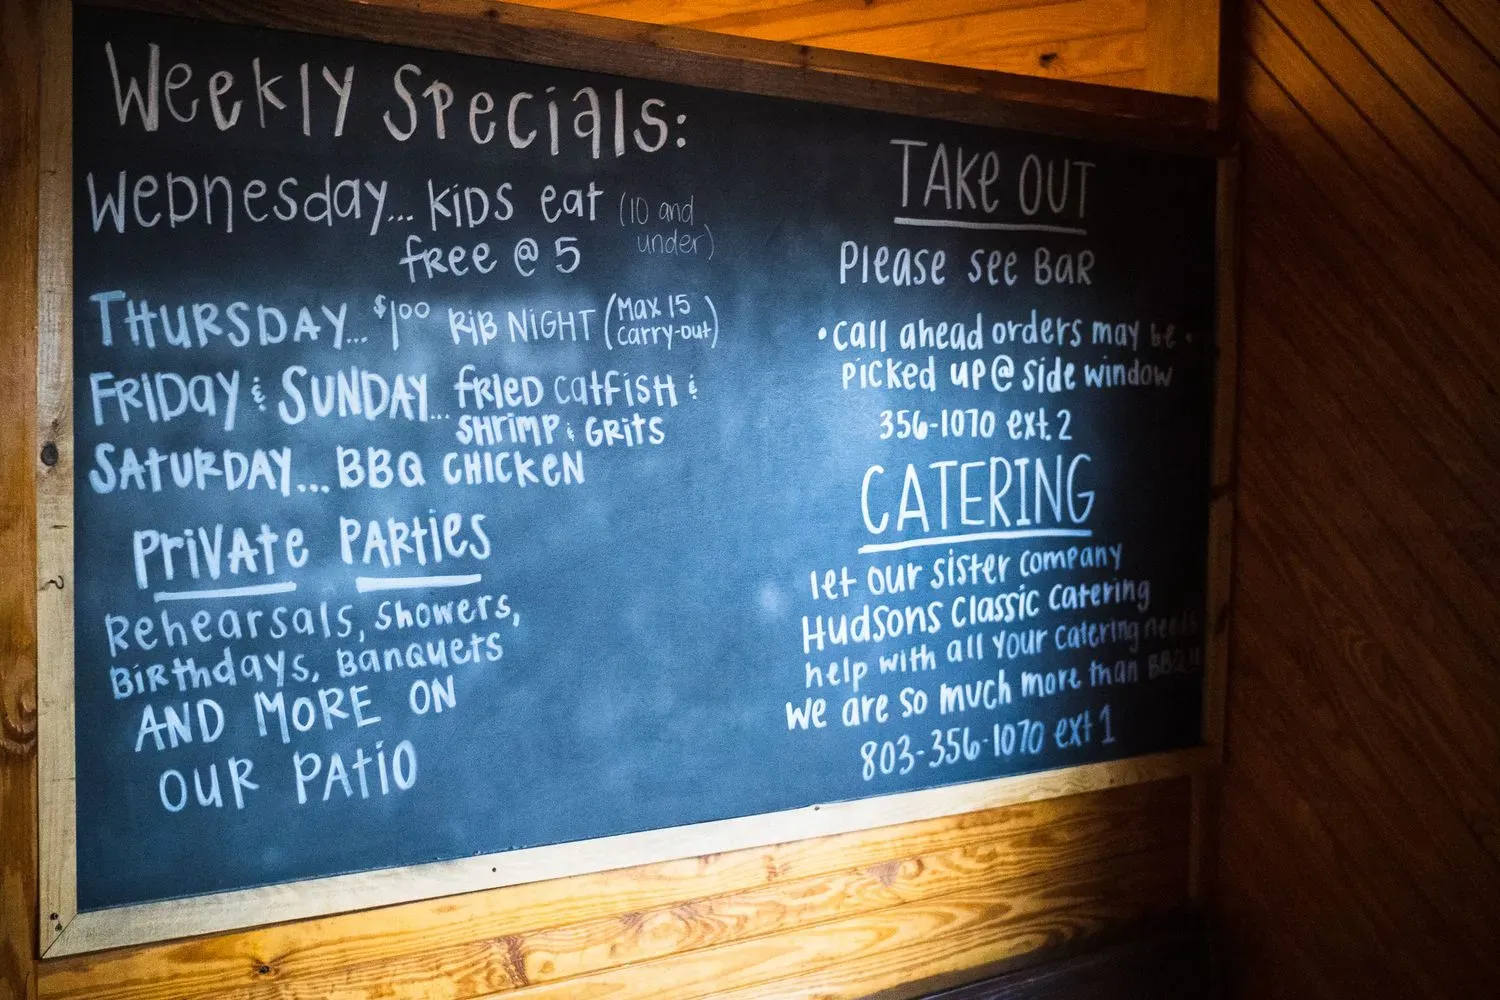 Weekly Specials:
Wednesday... Kids eat (10 and
free @ 5 under)
THURSDAY... $1.00 RiB NiGHT (Max 15
carry-out)
FRiDay & SUNDAY... fRieD catfiSH &
SHrimp & GRitS
SatURDAY... BBQ CHiCKeN
PRiVAte PARties
Rehearsals, Showers,
BiRthdays, BanQuets
AND MORE ON
OUR PAtiO
TAKe OUT
Please see BaR
• call ahead orders may be •
picked up @ side window
356-1070 ext. 2
CATERING
let our sister company
Hudsons Classic catering
help with all your catering needs
we are so much more than BBQ!!
803-356-1070 ext 1